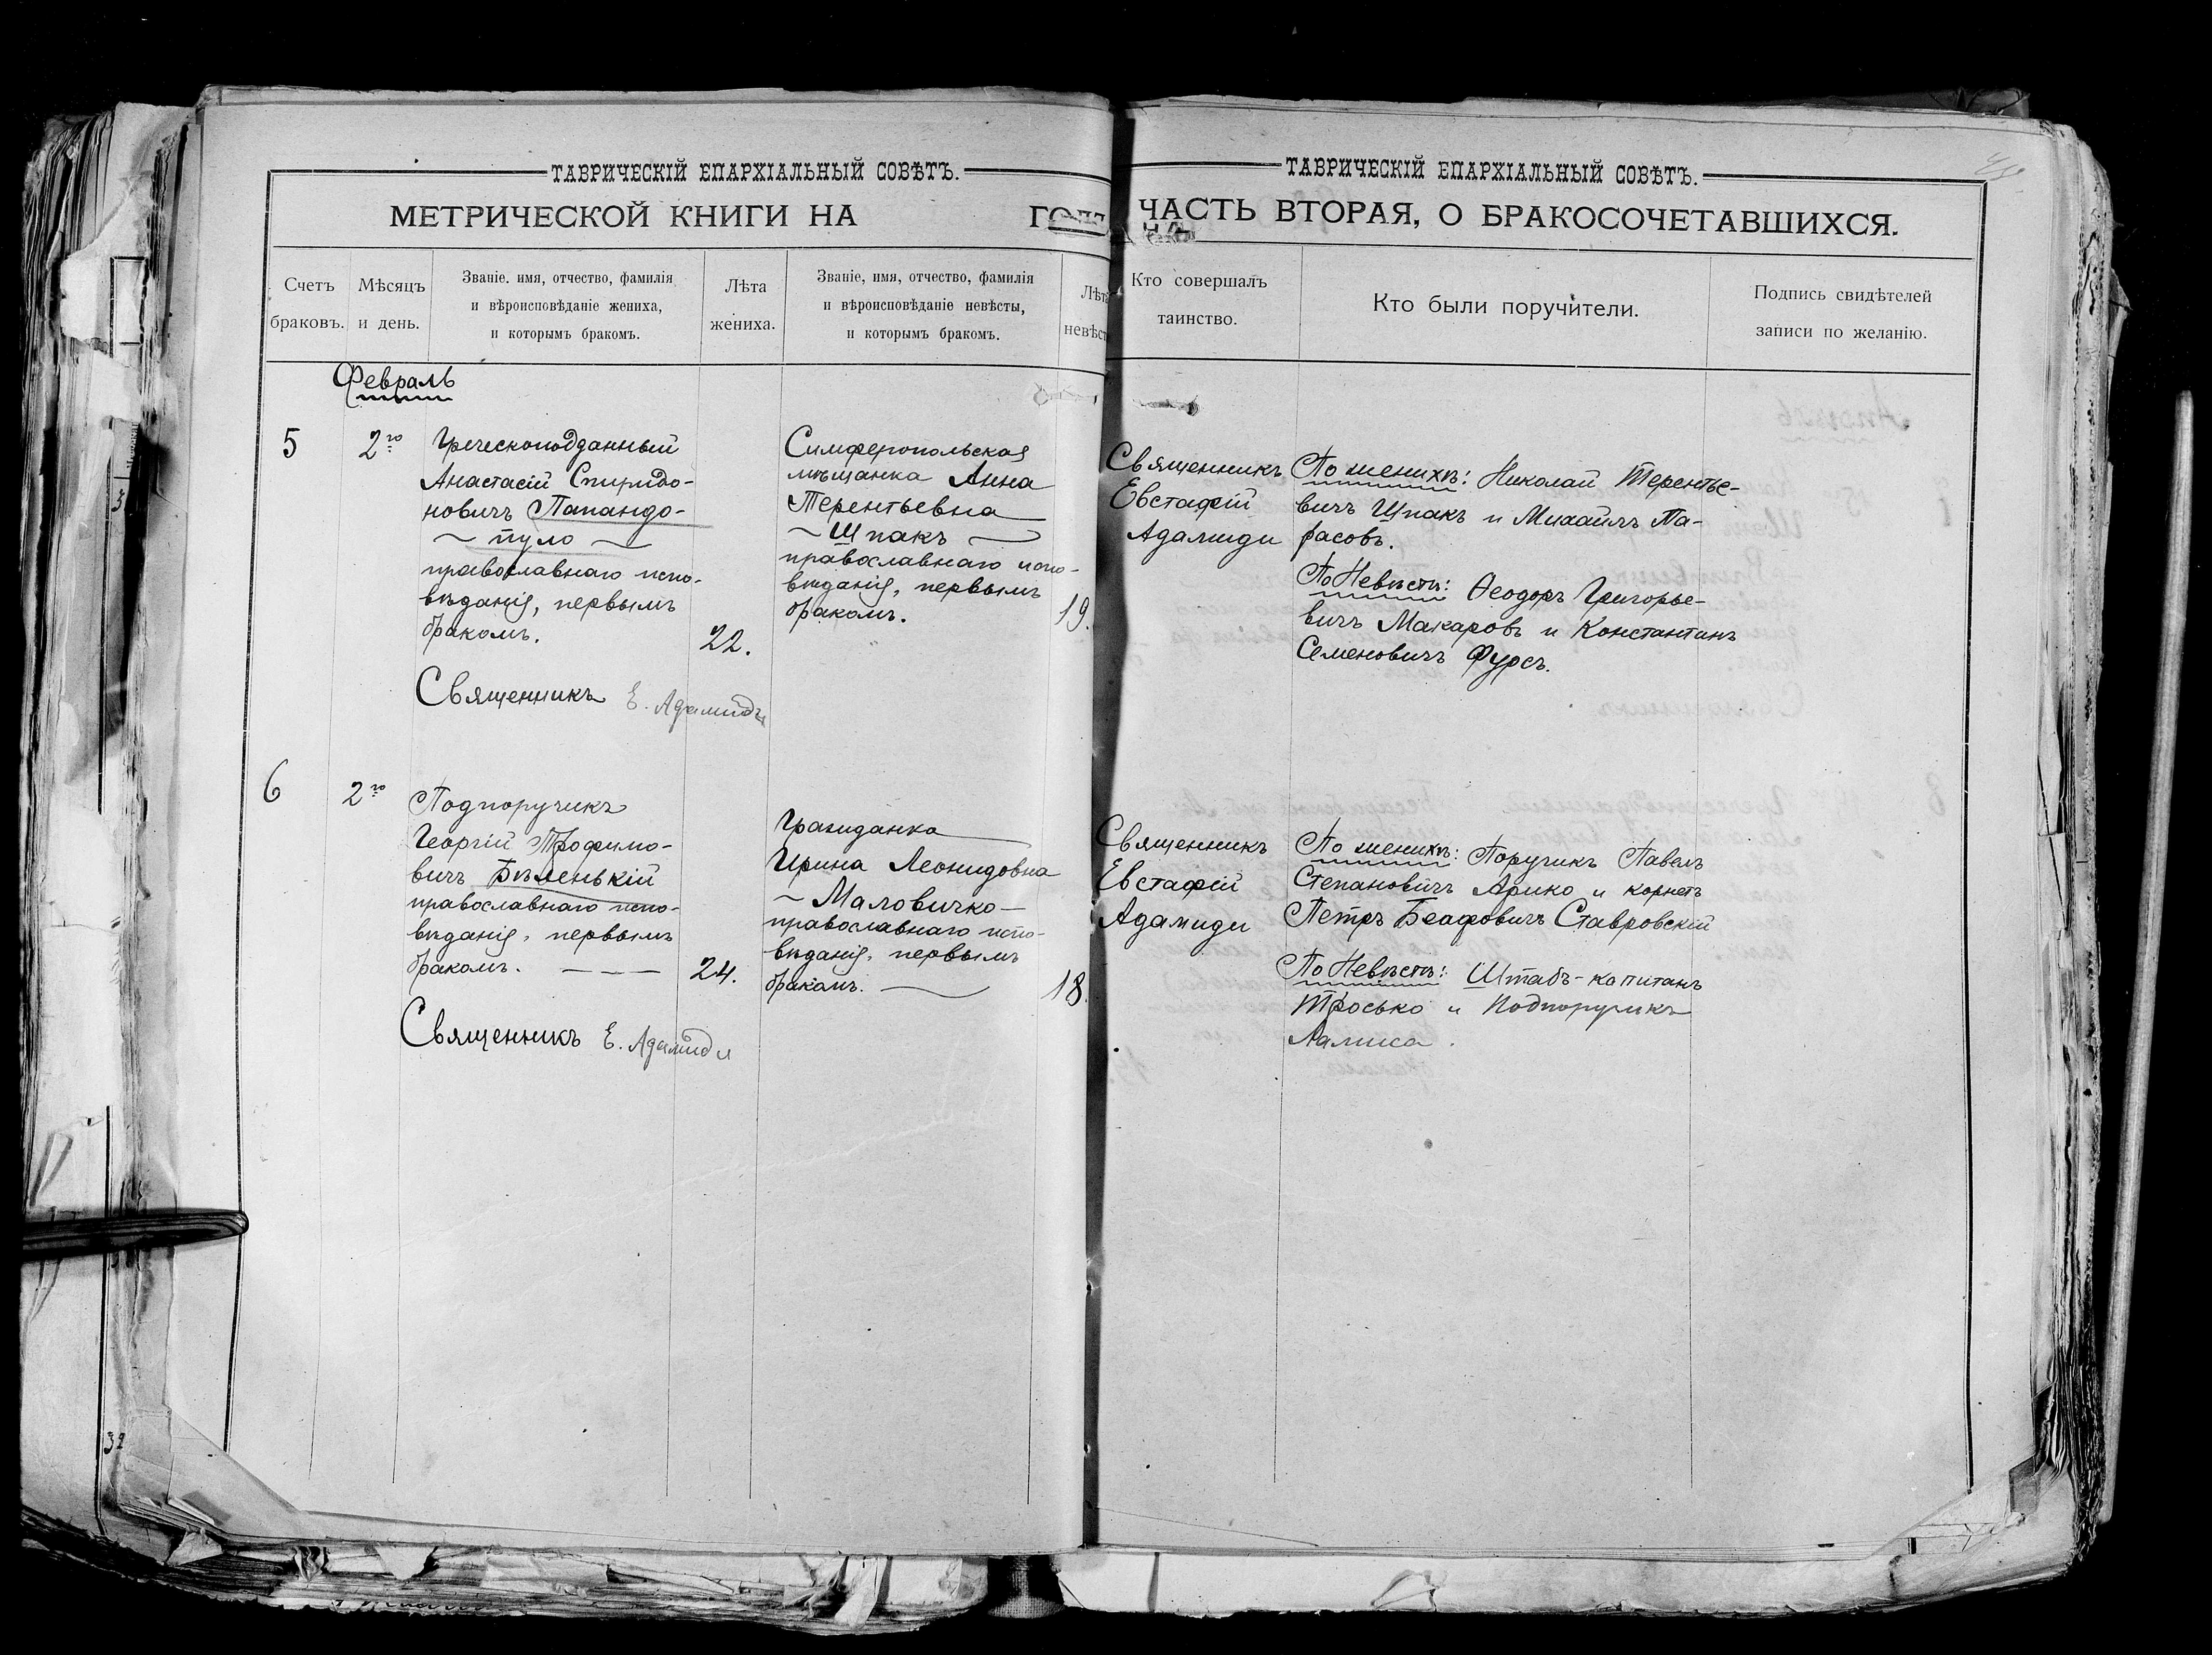 ТАВРИЧЕСКІЙ ЕПАРХІАЛЬНЫЙ СОВѢТЪ.
МЕТРИЧЕСКОЙ КНИГИ НА
Счетъ браковъ.
Мѣсяцъ и день.
Званіе, имя, отчество, фамилія
и вѣроисповѣданіе жениха,
и которымъ бракомъ.
Лѣта жениха.
Званіе, имя, отчество, фамилія
и вѣроисповѣданіе невѣсты,
и которымъ бракомъ.
Февраль
5
2го
Греческоподданный
Анастасій Спиридо-
новичъ Папандо-
пуло
православнаго испо-
вѣданія, первымъ
бракомъ.
22.
Симферопольская
мѣщанка Анна
Терентьевна
Шпакъ
православнаго испо-
вѣданія, первымъ
бракомъ.
19.
Священникъ Е. Адамиди
6
2го
Подпоручикъ
Георгій Трофимо-
вичъ Бѣленькій
православнаго испо-
вѣданія, первымъ
бракомъ.
24.
Гражданка
Ирина Леонидовна
Маловичко
православнаго испо-
вѣданія, первымъ
бракомъ.
18.
Священникъ Е. Адамиди
32
ТАВРИЧЕСКІЙ ЕПАРХІАЛЬНЫЙ СОВѢТЪ.
ЧАСТЬ ВТОРАЯ, О БРАКОСОЧЕТАВШИХСЯ.
Кто совершалъ
таинство.
Кто были поручители.
Подпись свидѣтелей
записи по желанію.
Священникъ
Евстафій
Адамиди
По женихѣ: Николай Терентье-
вичъ Шпакъ и Михаилъ
По Невѣстѣ: Ѳеодоръ Григорье-
вичъ Макаровъ и Константинъ
Семеновичъ Фурсъ.
Священникъ
Евстафій
Адамиди
По женихѣ: Поручикъ Павелъ
Степановичъ Арико и корнетъ
Петръ Ставровскій
По Невѣстѣ: Штабъ-капитанъ
Тросько и Подпоручикъ